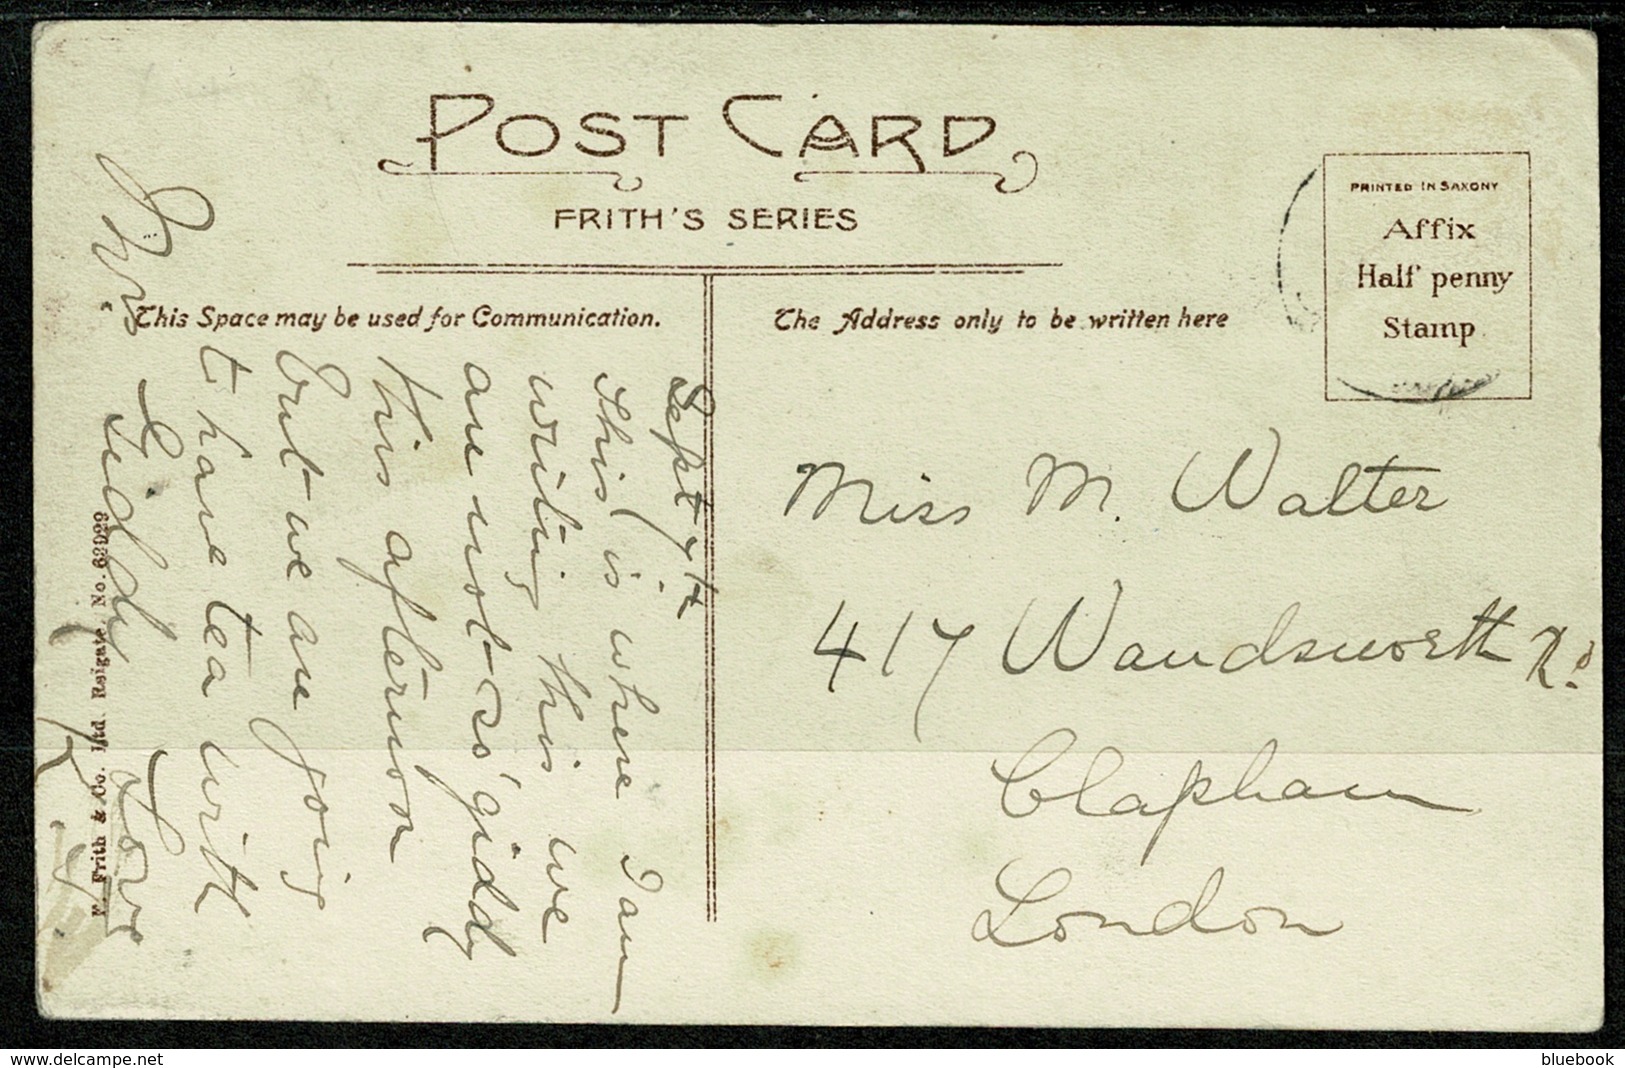 POST CARD
FRITH'S SERIES
PRINTED IN SAXONY
Affix
Half penny
Stamp
This Space may be used for Communication.
The Address only to be written here
Sept 7th
This is where I am
writing this we
are not so giddy
this afternoon
but we are going
t have tea with
Mr. Giddy Love
F. Frith & Co. Ltd. Reigate. No.
Miss M. Walter
417 Wandsworth Rd
Clapham
London
delcampe.net
bluebook